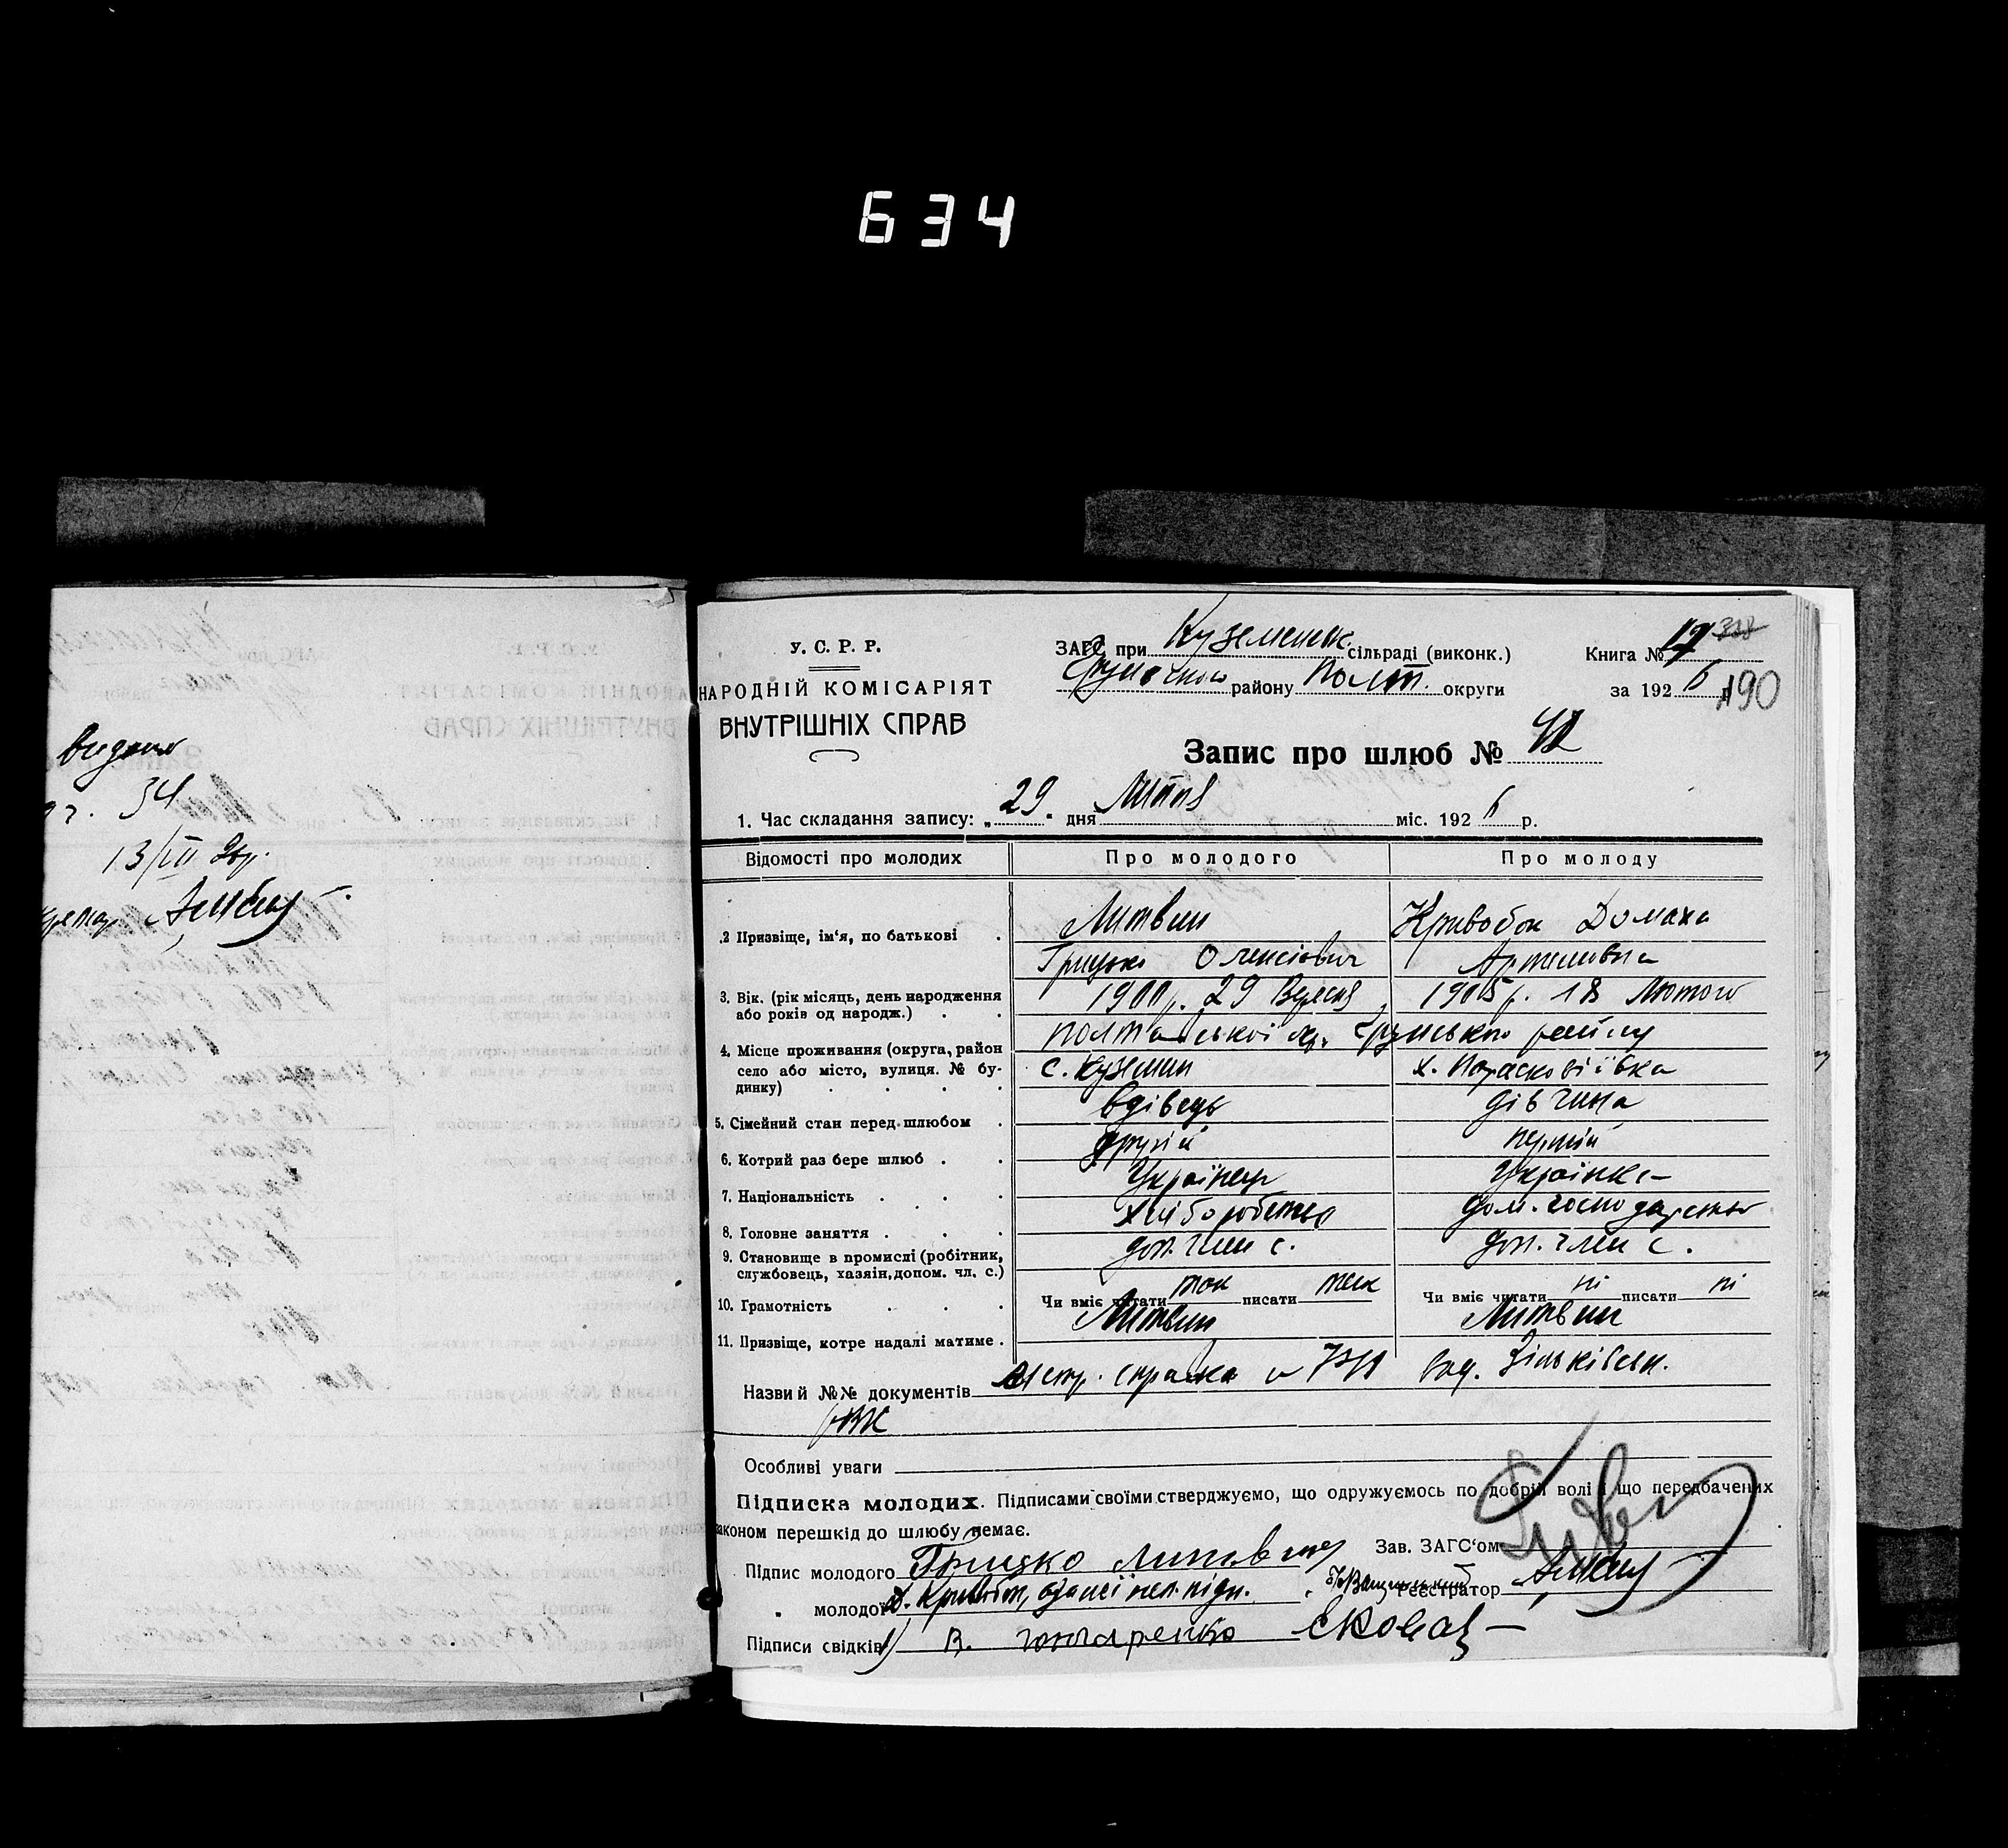 634
видано
34
13/VII 26р.
У. С. Р. Р.
НАРОДНІЙ КОМІСАРІЯТ
ВНУТРІШНІХ СПРАВ
ЗАГС при Куземенськ. сільраді (виконк.)
Грунського району Полт. округи
Книга № 17 338
за 1926 р.
190
Запис про шлюб № 42
1. Час складання запису: „29" дня Липня міс. 1926 р.
Відомості про молодих Про молодого Про молоду
2 Призвіще, ім'я, по батькові . Литвин Кривобок Домаха
Грицько Олексієвич Артемовна
3. Вік. (рік місяць, день народження або років од народж.) . . 1900 р. 29 Вересня, 1905 р. 18 Лютого
Полтавської окр. Грунського району
4. Місце проживання (округа, район
село або місто, вулиця. № бу-
динку) . . . . с. Куземин х. Парасковіївка
5. Сімейний стан перед шлюбом . вдівець дівчина
6. Котрий раз бере шлюб . . другий перший
7. Національність . . . Українець Українка
8. Головне заняття . . . Хліборобство дом. господарство
9. Становище в промислі (робітник,
службовець, хазяін, допом. чл. с.) доп. член с. доп. член с.
10. Грамотність . . . Чи вміє читати так писати так Чи вміє читати ні писати ні
11. Призвіще, котре надалі матиме . Литвин Литвин
Назви й №№ документів справка Зіньківськ.
РВК
Особливі уваги
Підписка молодих. Підписами своїми стверджуємо, що одружуємось по добрій волі і що передбачених
законом перешкід до шлюбу немає.
Підпис молодого Грицько Литвин Зав. ЗАГС'ом
„ молодої Д. Кривобок, Реєстратор
Підписи свідків 1) В. Гончаренко